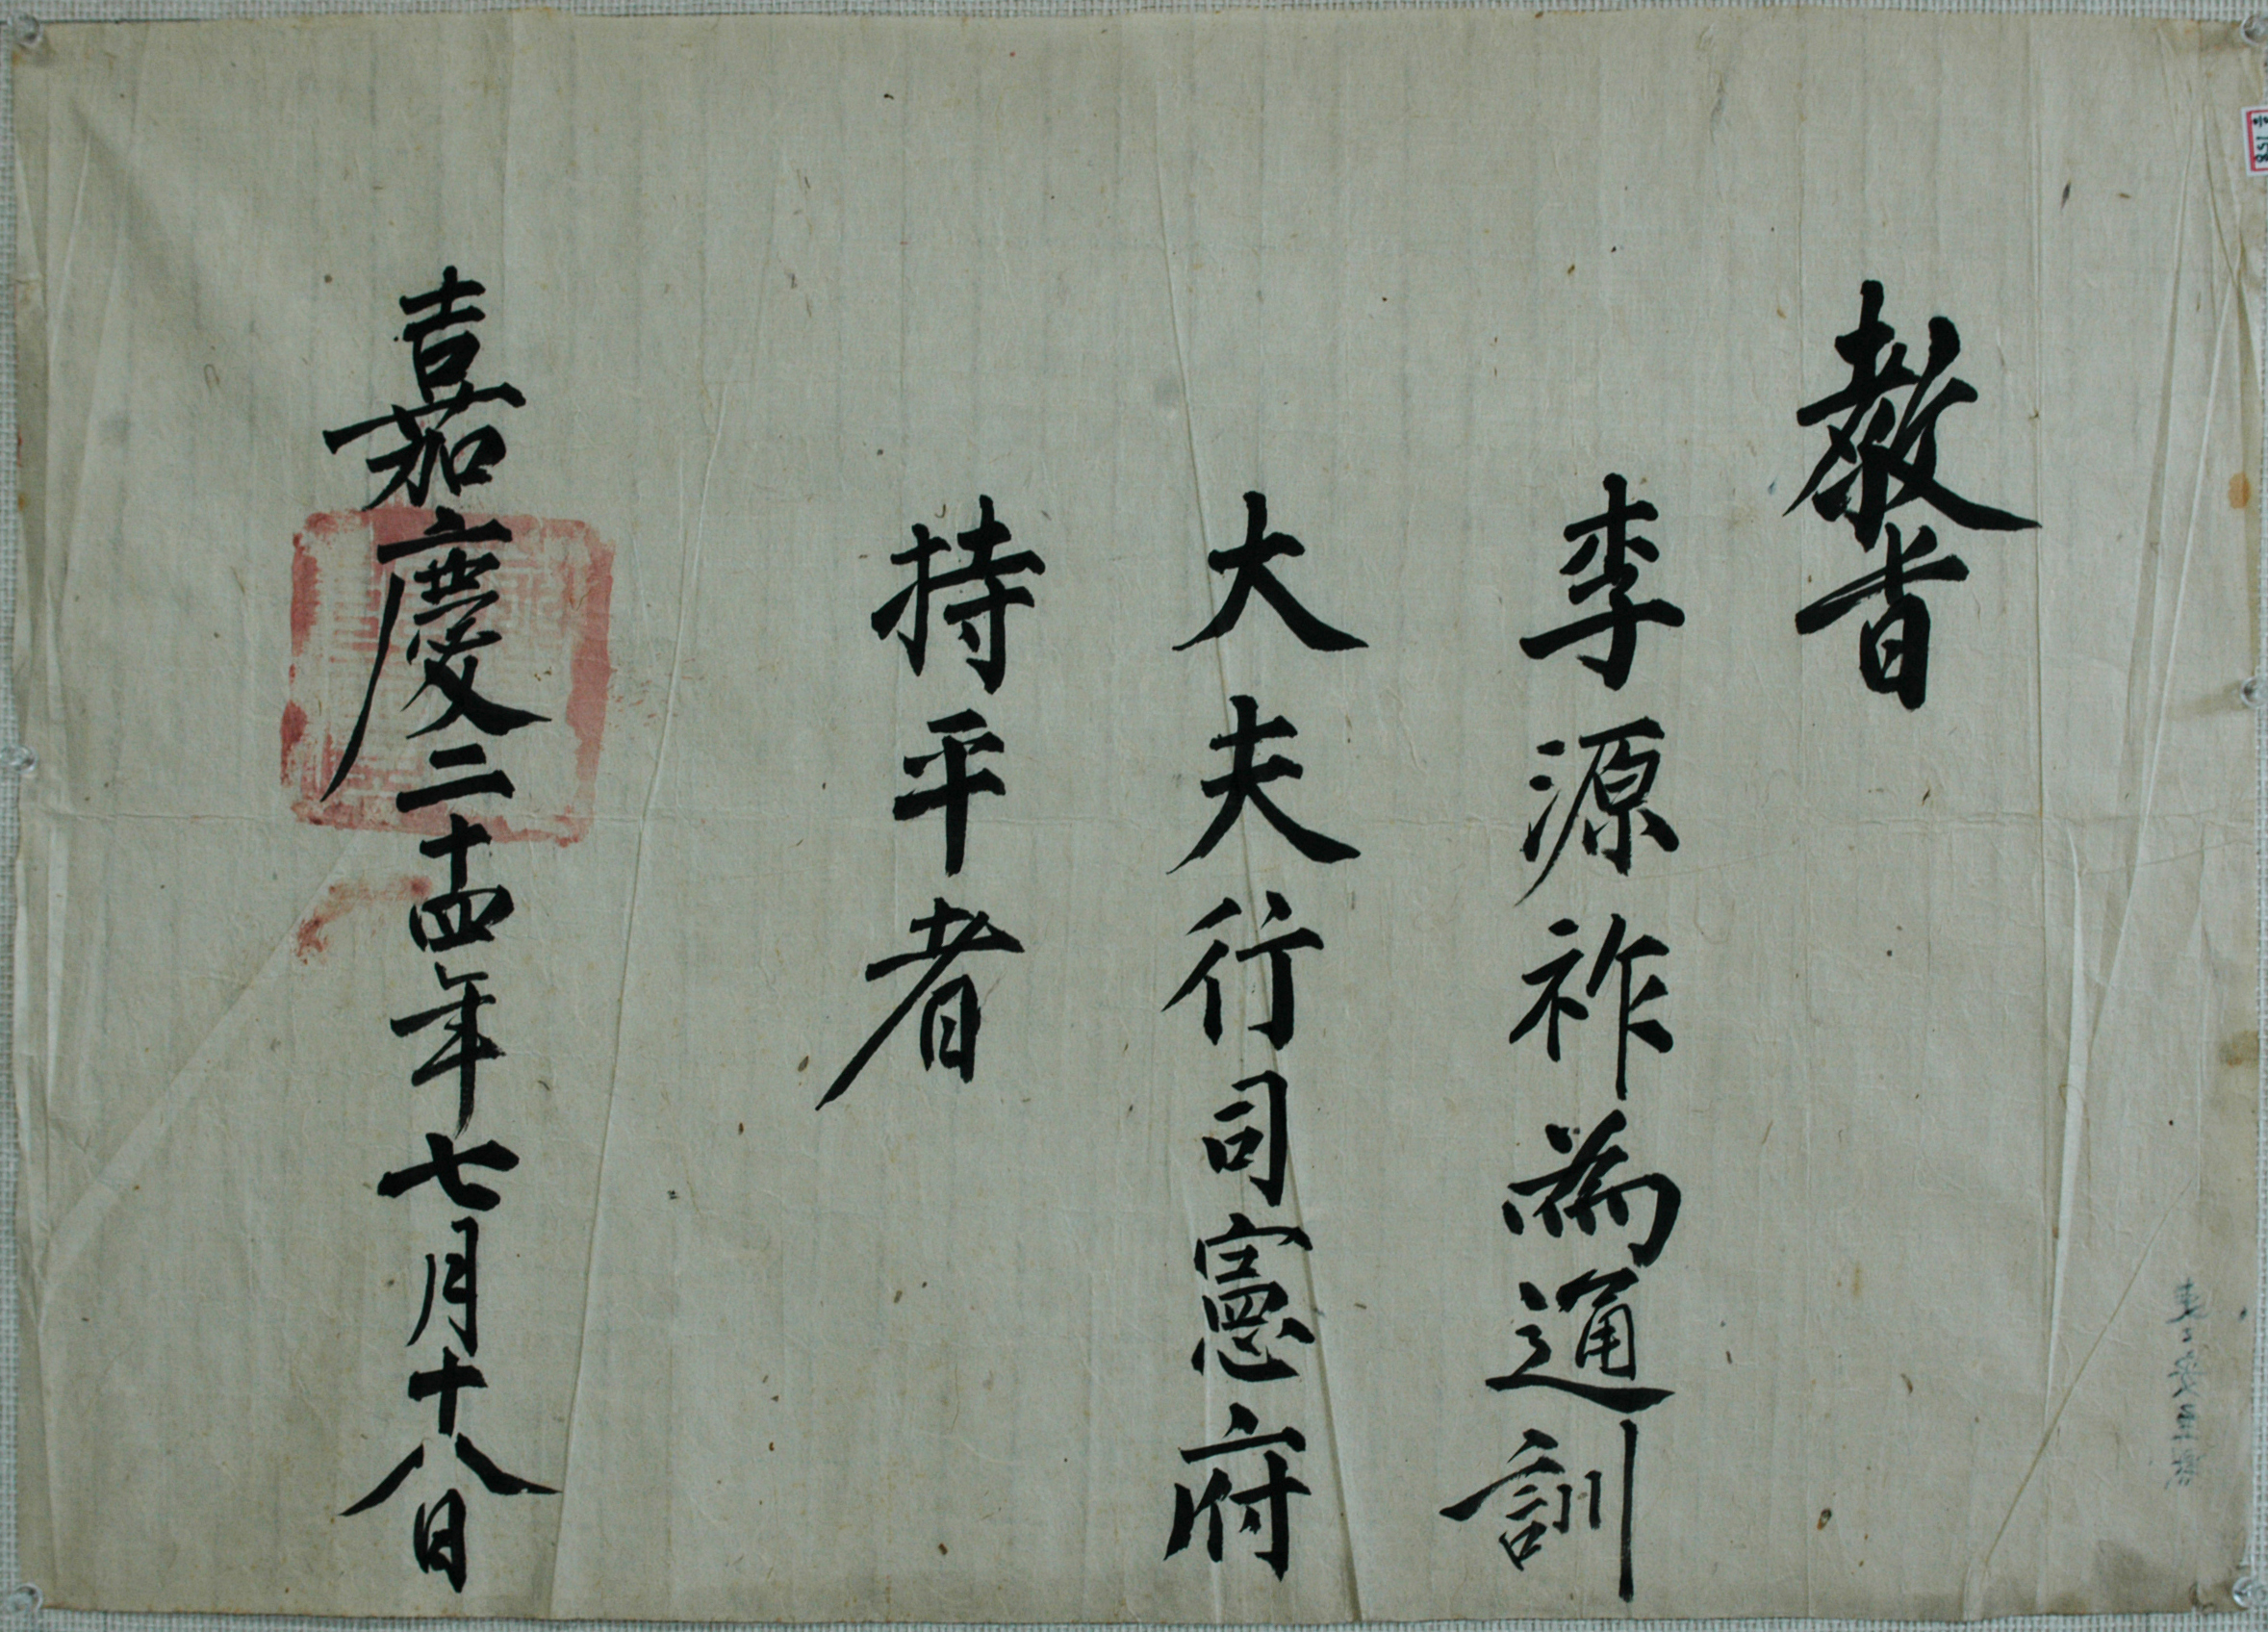 教旨
李源祚爲通訓
大夫行司憲府
持平者
嘉慶二十四年七月十八日